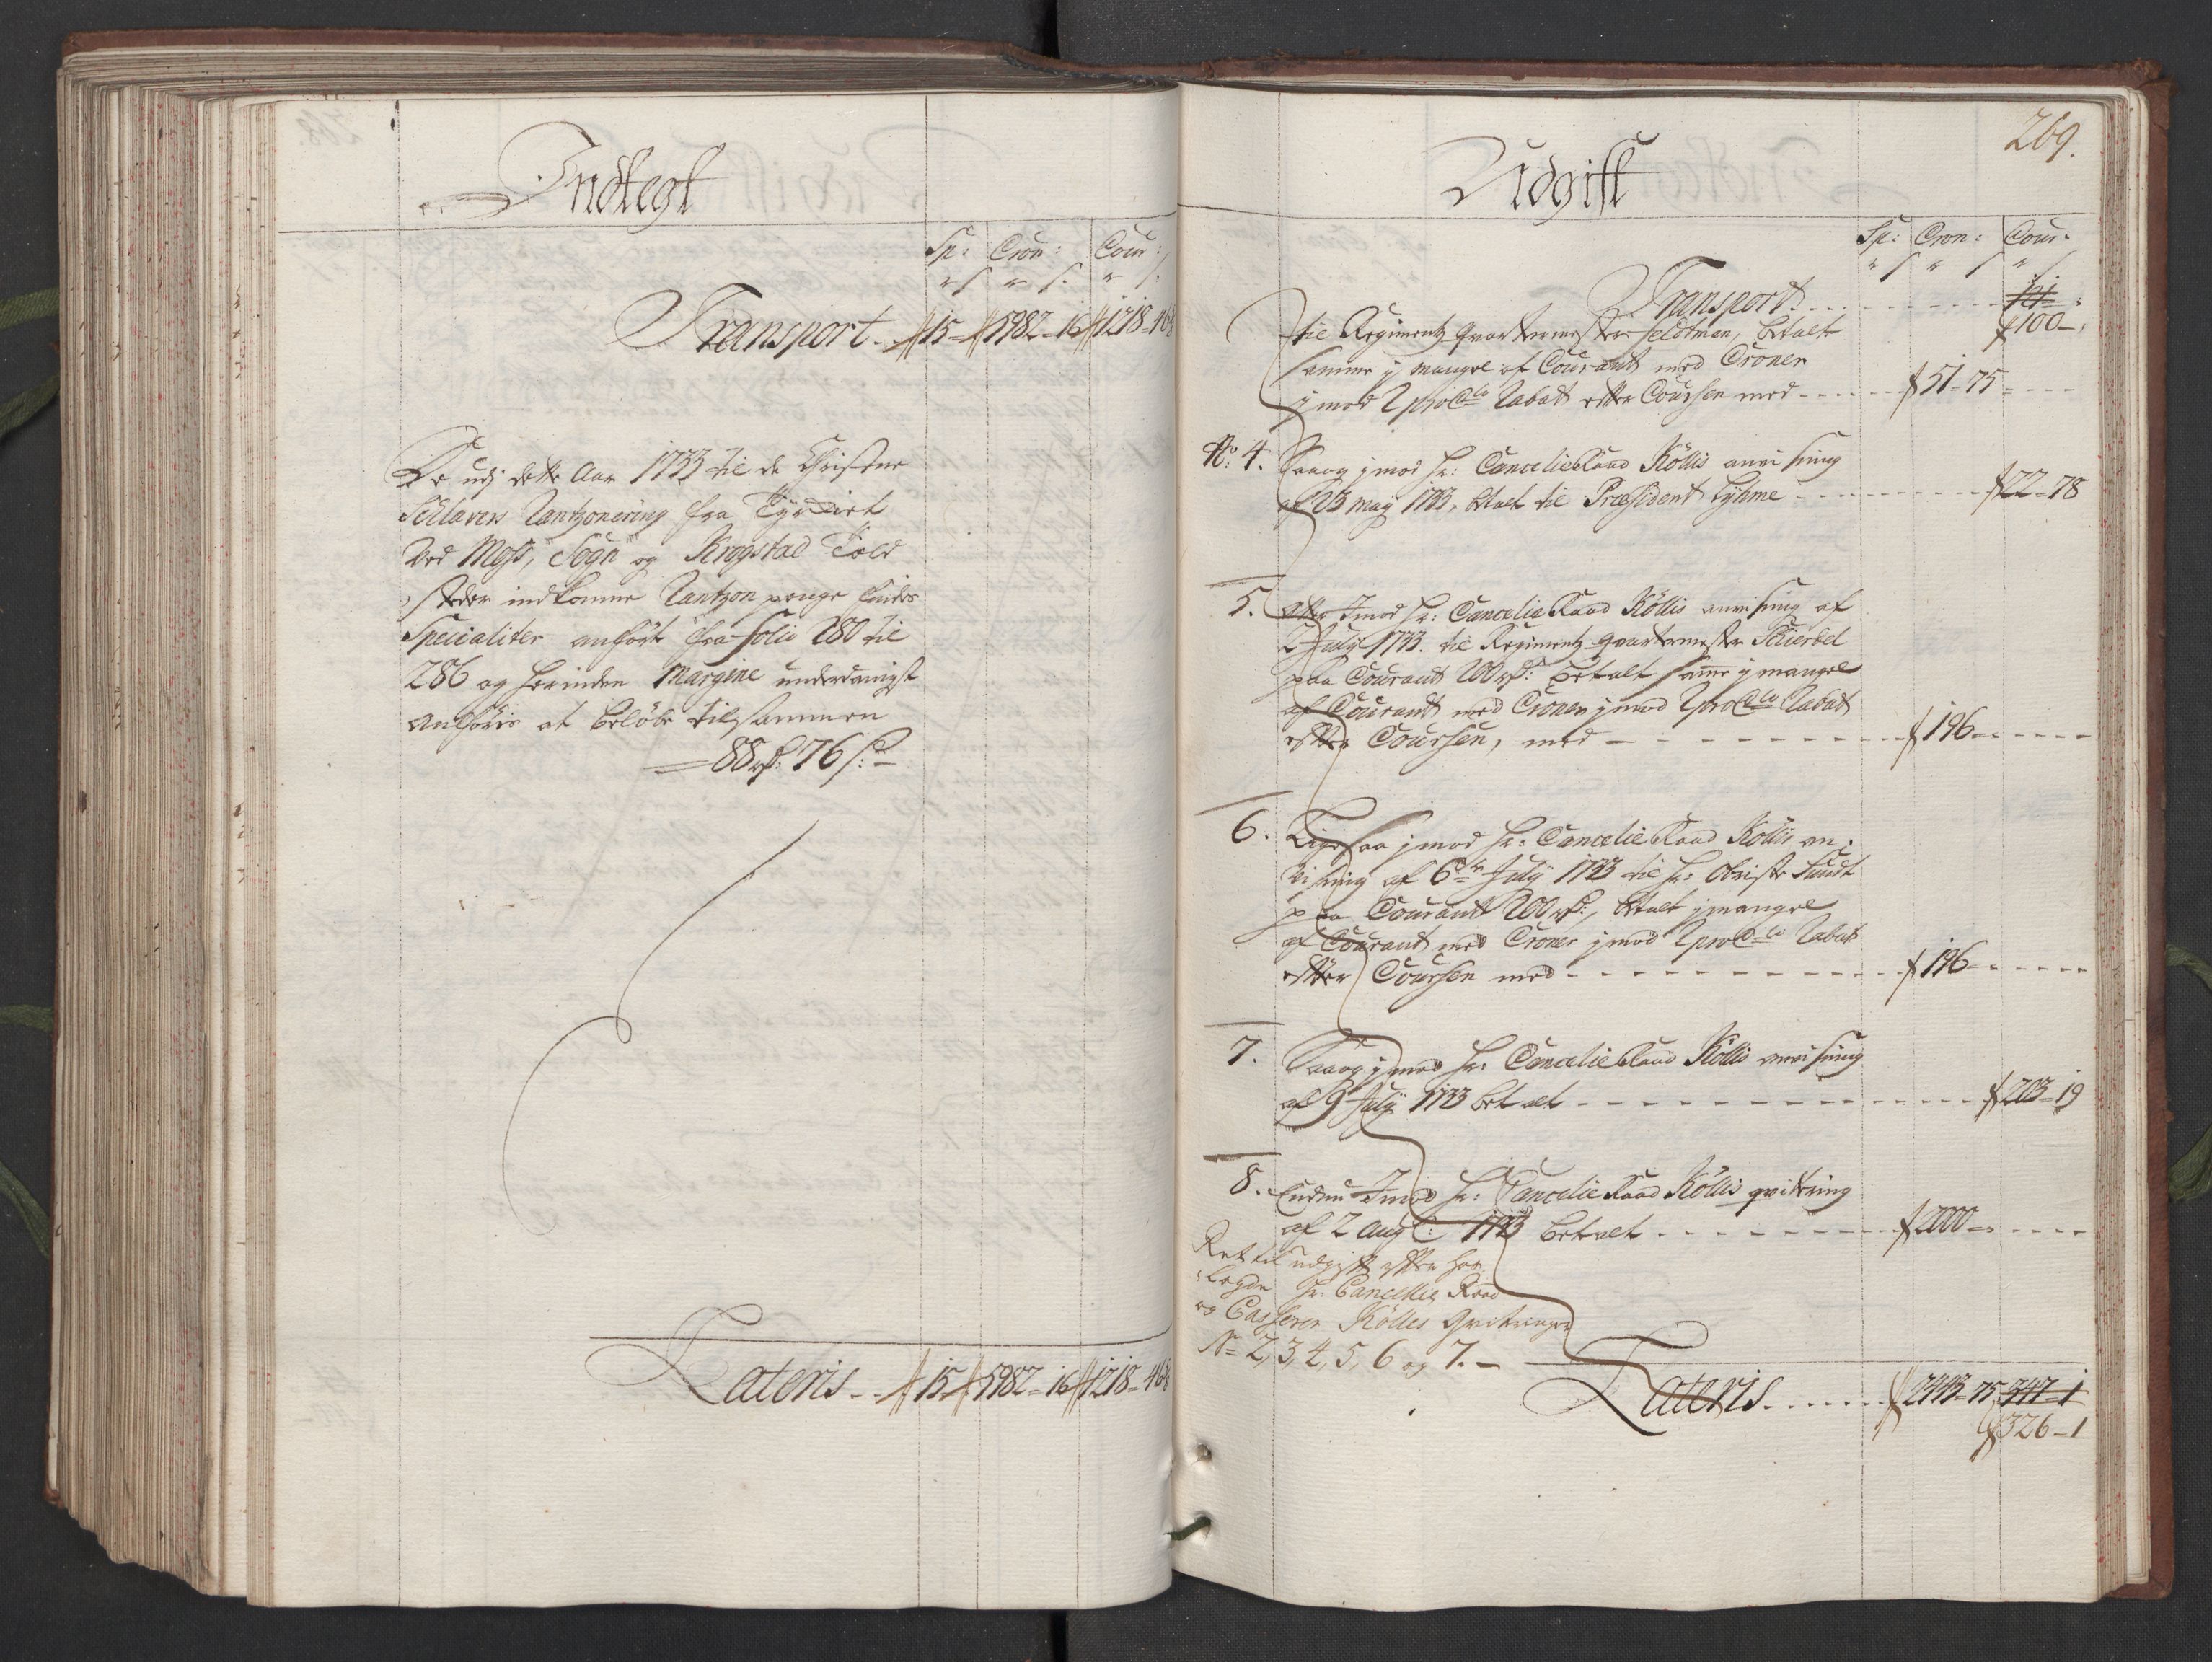 Indtegt
Sp: Cron: Cour:
Transport - 15 - 5982 - 16 1218 - 46
De udj dette Aar 1733 til de Christne
Schlavers Rantzonering fra Tyrkiet
Ved Moss, Sogn og Krogstad Told
steder indkomne Rantzon penge findes
Specialiter anført fra Folio 280 til
286 og herinden Margine underdanigst
anføris at beløbe tilsammen
88 rd: 76 s:
Lateris - 15 - 5982 - 16 1218 - 46
269.
Udgift
Sp: Cron: Cour:
Transport
121
100 -
til Regimentz Qvartermester Feldtman, betalt
samme j mangel af Courant med Croner
jmod 2 pro Cto Rabat efter Coursen med - 51 - 75
No: 4. Saaog jmod Hr: Cancelie Raad Köllis anvisning
af 23 May 1733, betalt til Præsident Lyhme - 22 - 78
5. Atter Imod Hr: Cancelie Raad Köllis anvisning af
2 July 1733. til Regimentz Qvartermester
paa Courant 200 rd: betalt samme j mangel
af Courant med Croner jmod 2 pro Cto Rabat
efter Coursen, med - 196
6. Ligesaa jmod Hr: Cancelie Raad Köllis an-
visning af 6te July 1733 til Hr: Obriste
paa Courant 200 rd:, betalt j mangel
af Courant med Croner jmod 2 pro Cto Rabat
efter Coursen med - 196
7. Saaog jmod Hr: Cancelie Raad Köllis anvisning
af 9 July 1733 betalt - 203 - 19
8. Endnu Imod Hr: Cancelie Raad Köllis qvittering
af 2 Aug: 1733 betalt - 2000
Ret til udgift efter hos
lagde Hr: Cancellie Raad
og Casserer Kölles Qvitteringer
No 2, 3, 4, 5, 6 og 7. -
Lateris - 2443 - 75 347 - 1
326 - 1